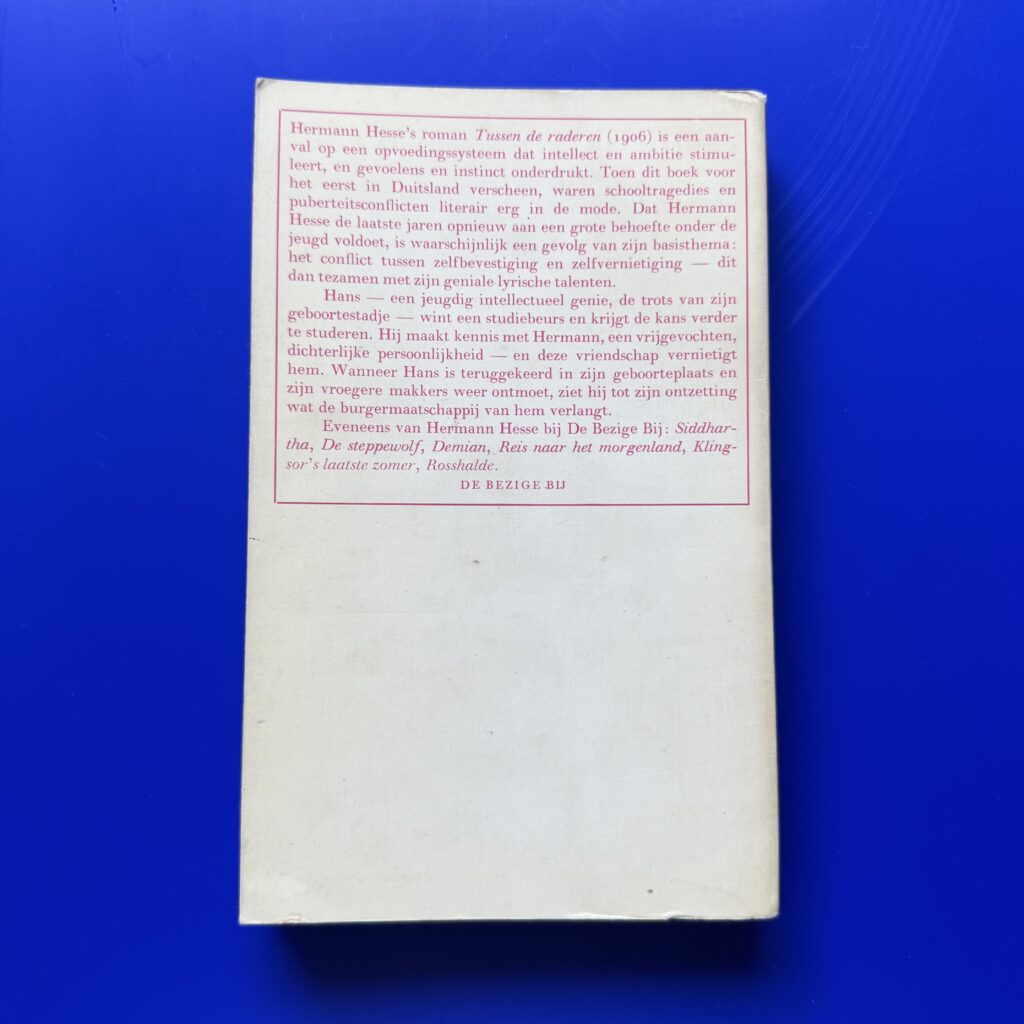 Hermann Hesse's roman Tussen de raderen (1906) is een aan-
val op een opvoedingssysteem dat intellect en ambitie stimu-
leert, en gevoelens en instinct onderdrukt. Toen dit boek voor
het eerst in Duitsland verscheen, waren schooltragedies en
puberteitsconflicten literair erg in de mode. Dat Hermann
Hesse de laatste jaren opnieuw aan een grote behoefte onder de
jeugd voldoet, is waarschijnlijk een gevolg van zijn basisthema:
het conflict tussen zelfbevestiging en zelfvernietiging — dit
dan tezamen met zijn geniale lyrische talenten.
Hans — een jeugdig intellectueel genie, de trots van zijn
geboortestadje — wint een studiebeurs en krijgt de kans verder
te studeren. Hij maakt kennis met Hermann, een vrijgevochten,
dichterlijke persoonlijkheid — en deze vriendschap vernietigt
hem. Wanneer Hans is teruggekeerd in zijn geboorteplaats en
zijn vroegere makkers weer ontmoet, ziet hij tot zijn ontzetting
wat de burgermaatschappij van hem verlangt.
Eveneens van Hermann Hesse bij De Bezige Bij: Siddhar-
tha, De steppewolf, Demian, Reis naar het morgenland, Kling-
sor's laatste zomer, Rosshalde.
DE BEZIGE BIJ